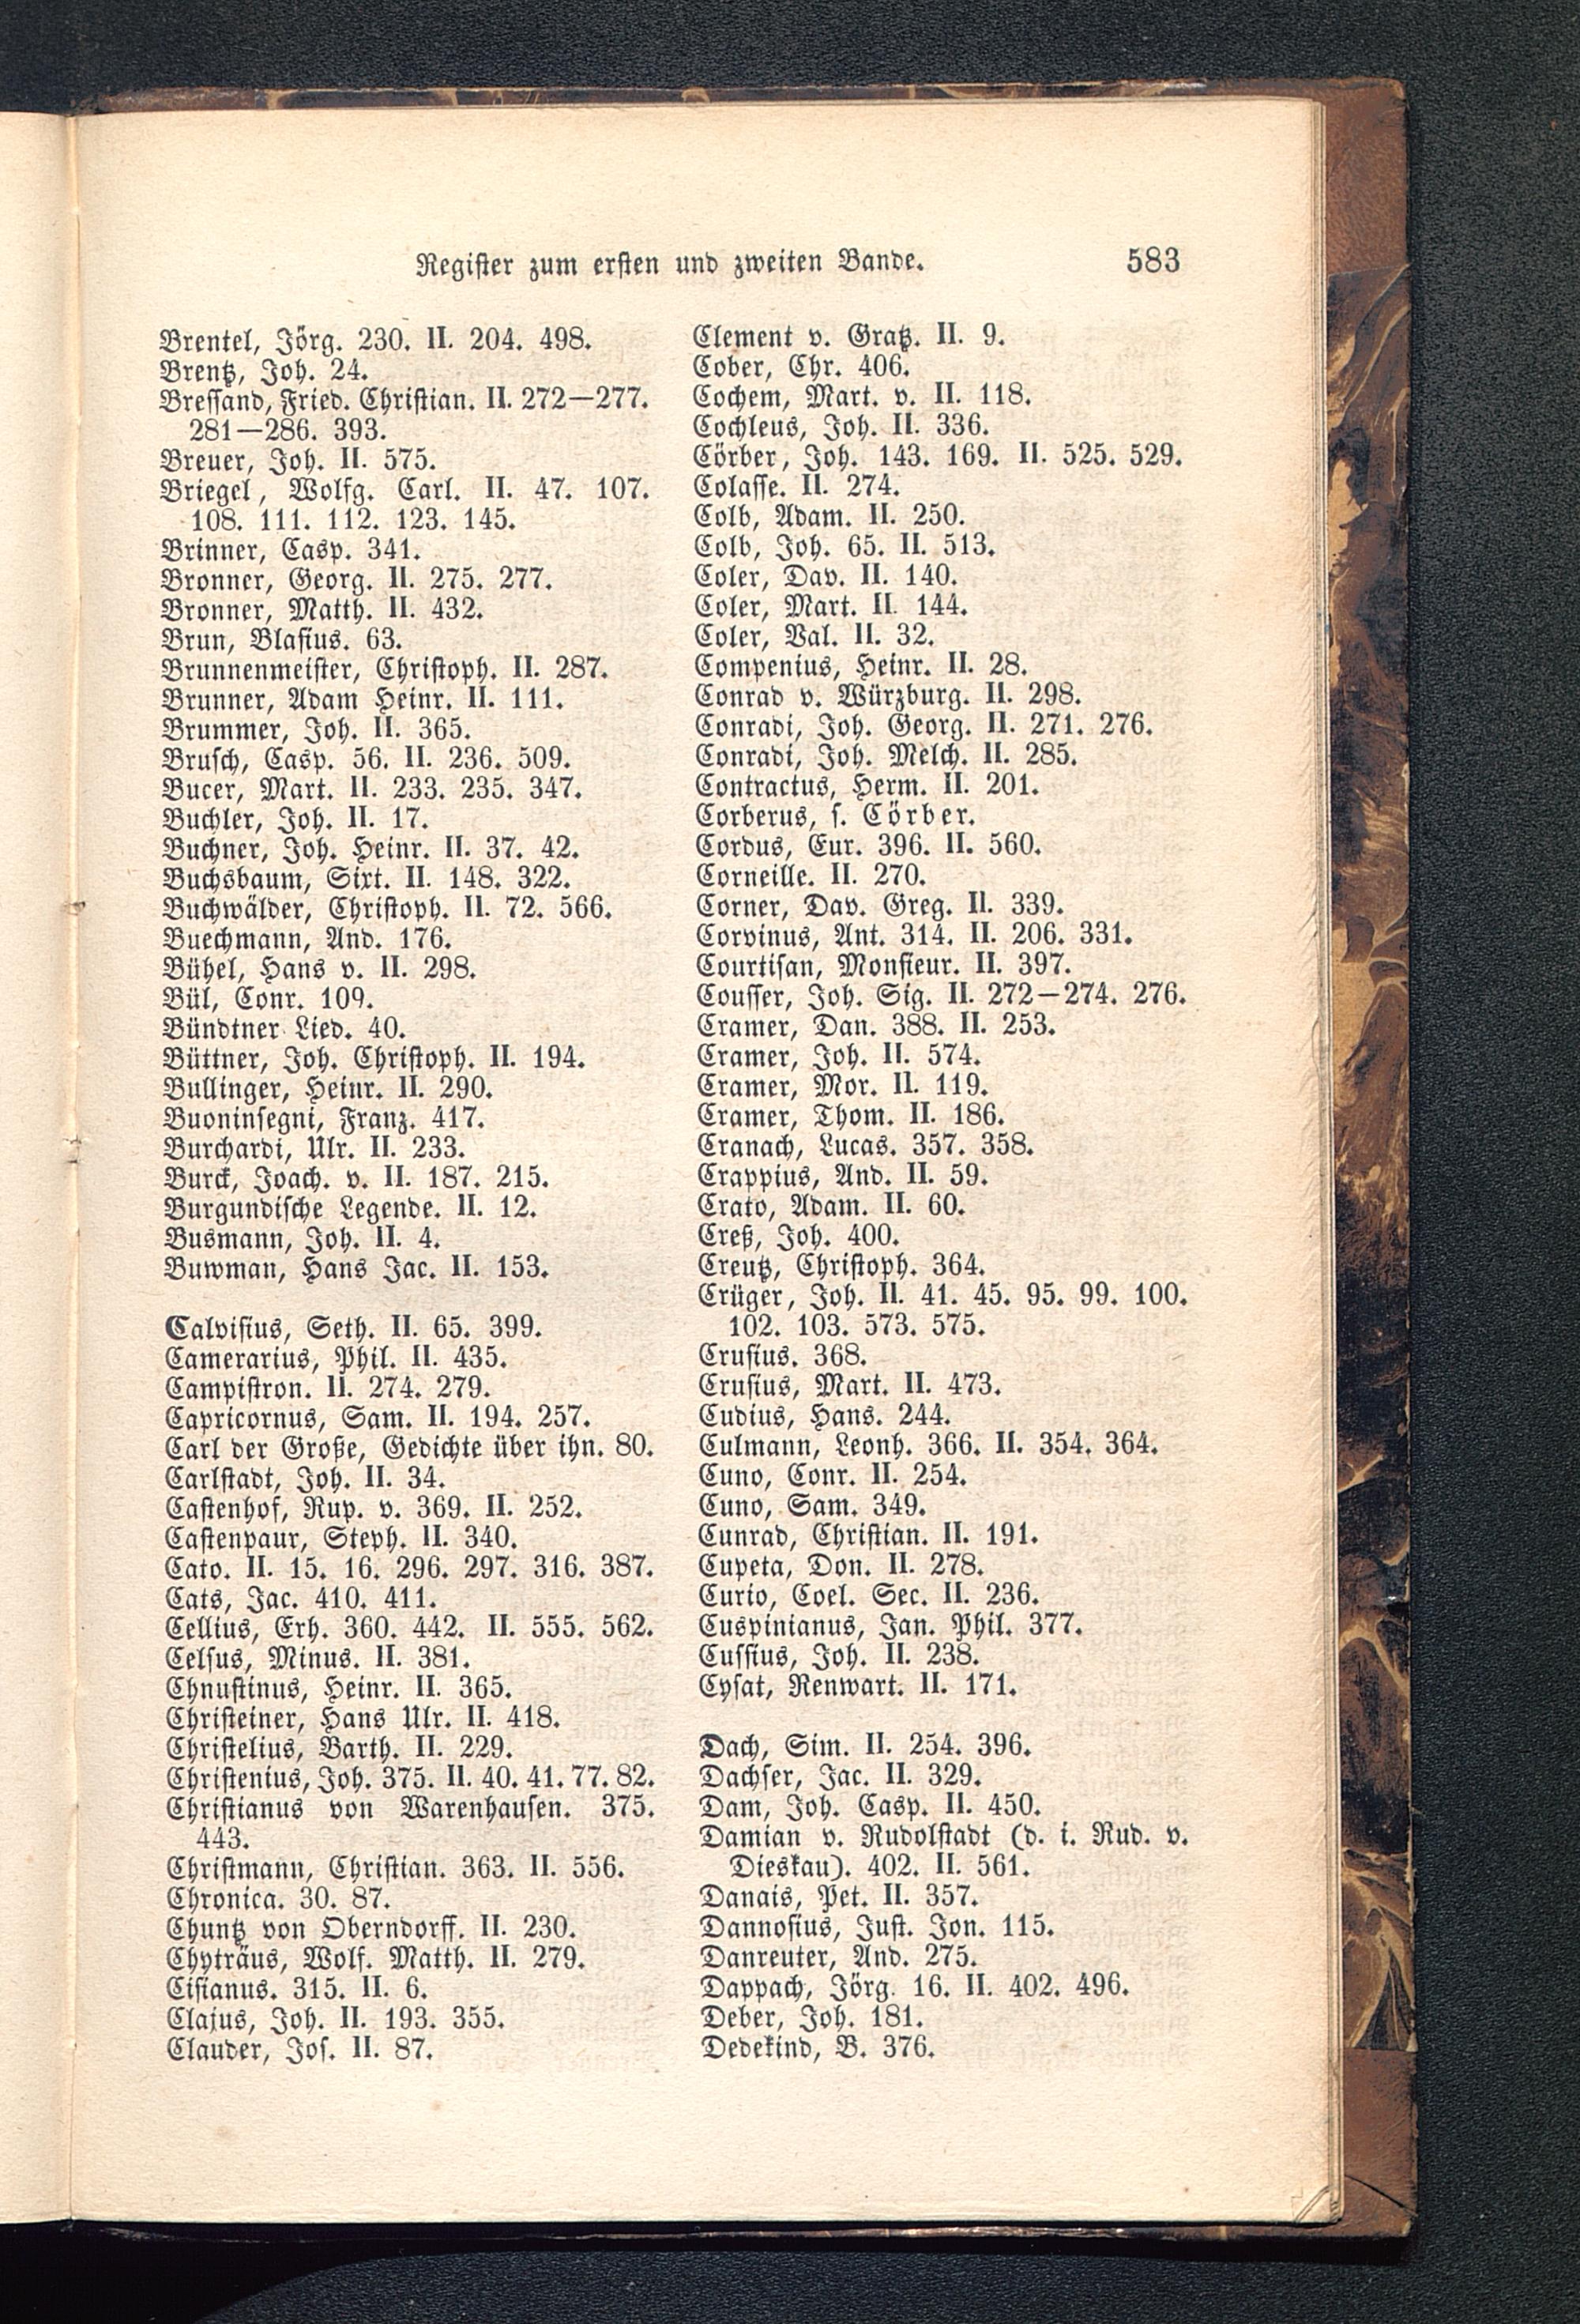 Register zum ersten und zweiten Bande. 583
Brentel, Jörg. 230. II. 204. 498.
Brentz, Joh. 24.
Bressand, Fried. Christian. II. 272—277.
281—286. 393.
Breuer, Joh. II. 575.
Briegel, Wolfg. Carl. II. 47. 107.
108. 111. 112. 123. 145.
Brinner, Casp. 341.
Bronner, Georg. II. 275. 277.
Bronner, Matth. II. 432.
Brun, Blasius. 63.
Brunnenmeister, Christoph. II. 287.
Brunner, Adam Heinr. II. 111.
Brummer, Joh. II. 365.
Brusch, Casp. 56. II. 236. 509.
Bucer, Mart. II. 233. 235. 347.
Buchler, Joh. II. 17.
Buchner, Joh. Heinr. II. 37. 42.
Buchsbaum, Sixt. II. 148. 322.
Buchwälder, Christoph. II. 72. 566.
Buechmann, And. 176.
Bühel, Hans v. II. 298.
Bül, Conr. 109.
Bündtner Lied. 40.
Büttner, Joh. Christoph. II. 194.
Bullinger, Heinr. II. 290.
Buoninsegni, Franz. 417.
Burchardi, Ulr. II. 233.
Burck, Joach. v. II. 187. 215.
Burgundische Legende. II. 12.
Busmann, Joh. II. 4.
Buwman, Hans Jac. II. 153.
Calvisius, Seth. II. 65. 399.
Camerarius, Phil. II. 435.
Campistron. II. 274. 279.
Capricornus, Sam. II. 194. 257.
Carl der Große, Gedichte über ihn. 80.
Carlstadt, Joh. II. 34.
Castenhof, Rup. v. 369. II. 252.
Castenpaur, Steph. II. 340.
Cato. II. 15. 16. 296. 297. 316. 387.
Cats, Jac. 410. 411.
Cellius, Erh. 360. 442. II. 555. 562.
Celsus, Minus. II. 381.
Chnustinus, Heinr. II. 365.
Christeiner, Hans Ulr. II. 418.
Christelius, Barth. II. 229.
Christenius, Joh. 375. II. 40. 41. 77. 82.
Christianus von Warenhausen. 375.
443.
Christmann, Christian. 363. II. 556.
Chronica. 30. 87.
Chuntz von Oberndorff. II. 230.
Chyträus, Wolf. Matth. II. 279.
Cisianus. 315. II. 6.
Clajus, Joh. II. 193. 355.
Clauder, Jos. II. 87.
Clement v. Gratz. II. 9.
Cober, Chr. 406.
Cochem, Mart. v. II. 118.
Cochleus, Joh. II. 336.
Cörber, Joh. 143. 169. II. 525. 529.
Colasse. II. 274.
Colb, Adam. II. 250.
Colb, Joh. 65. II. 513.
Coler, Dav. II. 140.
Coler, Mart. II. 144.
Coler, Val. II. 32.
Compenius, Heinr. II. 28.
Conrad v. Würzburg. II. 298.
Conradi, Joh. Georg. II. 271. 276.
Conradi, Joh. Melch. II. 285.
Contractus, Herm. II. 201.
Corberus, s. Cörber.
Cordus, Eur. 396. II. 560.
Corneille. II. 270.
Corner, Dav. Greg. II. 339.
Corvinus, Ant. 314. II. 206. 331.
Courtisan, Monsieur. II. 397.
Cousser, Joh. Sig. II. 272—274. 276.
Cramer, Dan. 388. II. 253.
Cramer, Joh. II. 574.
Cramer, Mor. II. 119.
Cramer, Thom. II. 186.
Cranach, Lucas. 357. 358.
Crappius, And. II. 59.
Crato, Adam. II. 60.
Creß, Joh. 400.
Creutz, Christoph. 364.
Crüger, Joh. II. 41. 45. 95. 99. 100.
102. 103. 573. 575.
Crusius. 368.
Crusius, Mart. II. 473.
Cudius, Hans. 244.
Culmann, Leonh. 366. II. 354. 364.
Cuno, Conr. II. 254.
Cuno, Sam. 349.
Cunrad, Christian. II. 191.
Cupeta, Don. II. 278.
Curio, Coel. Sec. II. 236.
Cuspinianus, Jan. Phil. 377.
Cussius, Joh. II. 238.
Cysat, Renwart. II. 171.
Dach, Sim. II. 254. 396.
Dachser, Jac. II. 329.
Dam, Joh. Casp. II. 450.
Damian v. Rudolstadt (d. i. Rud. v.
Dieskau). 402. II. 561.
Danais, Pet. II. 357.
Dannosius, Just. Jon. 115.
Danreuter, And. 275.
Dappach, Jörg. 16. II. 402. 496.
Deber, Joh. 181.
Dedekind, B. 376.